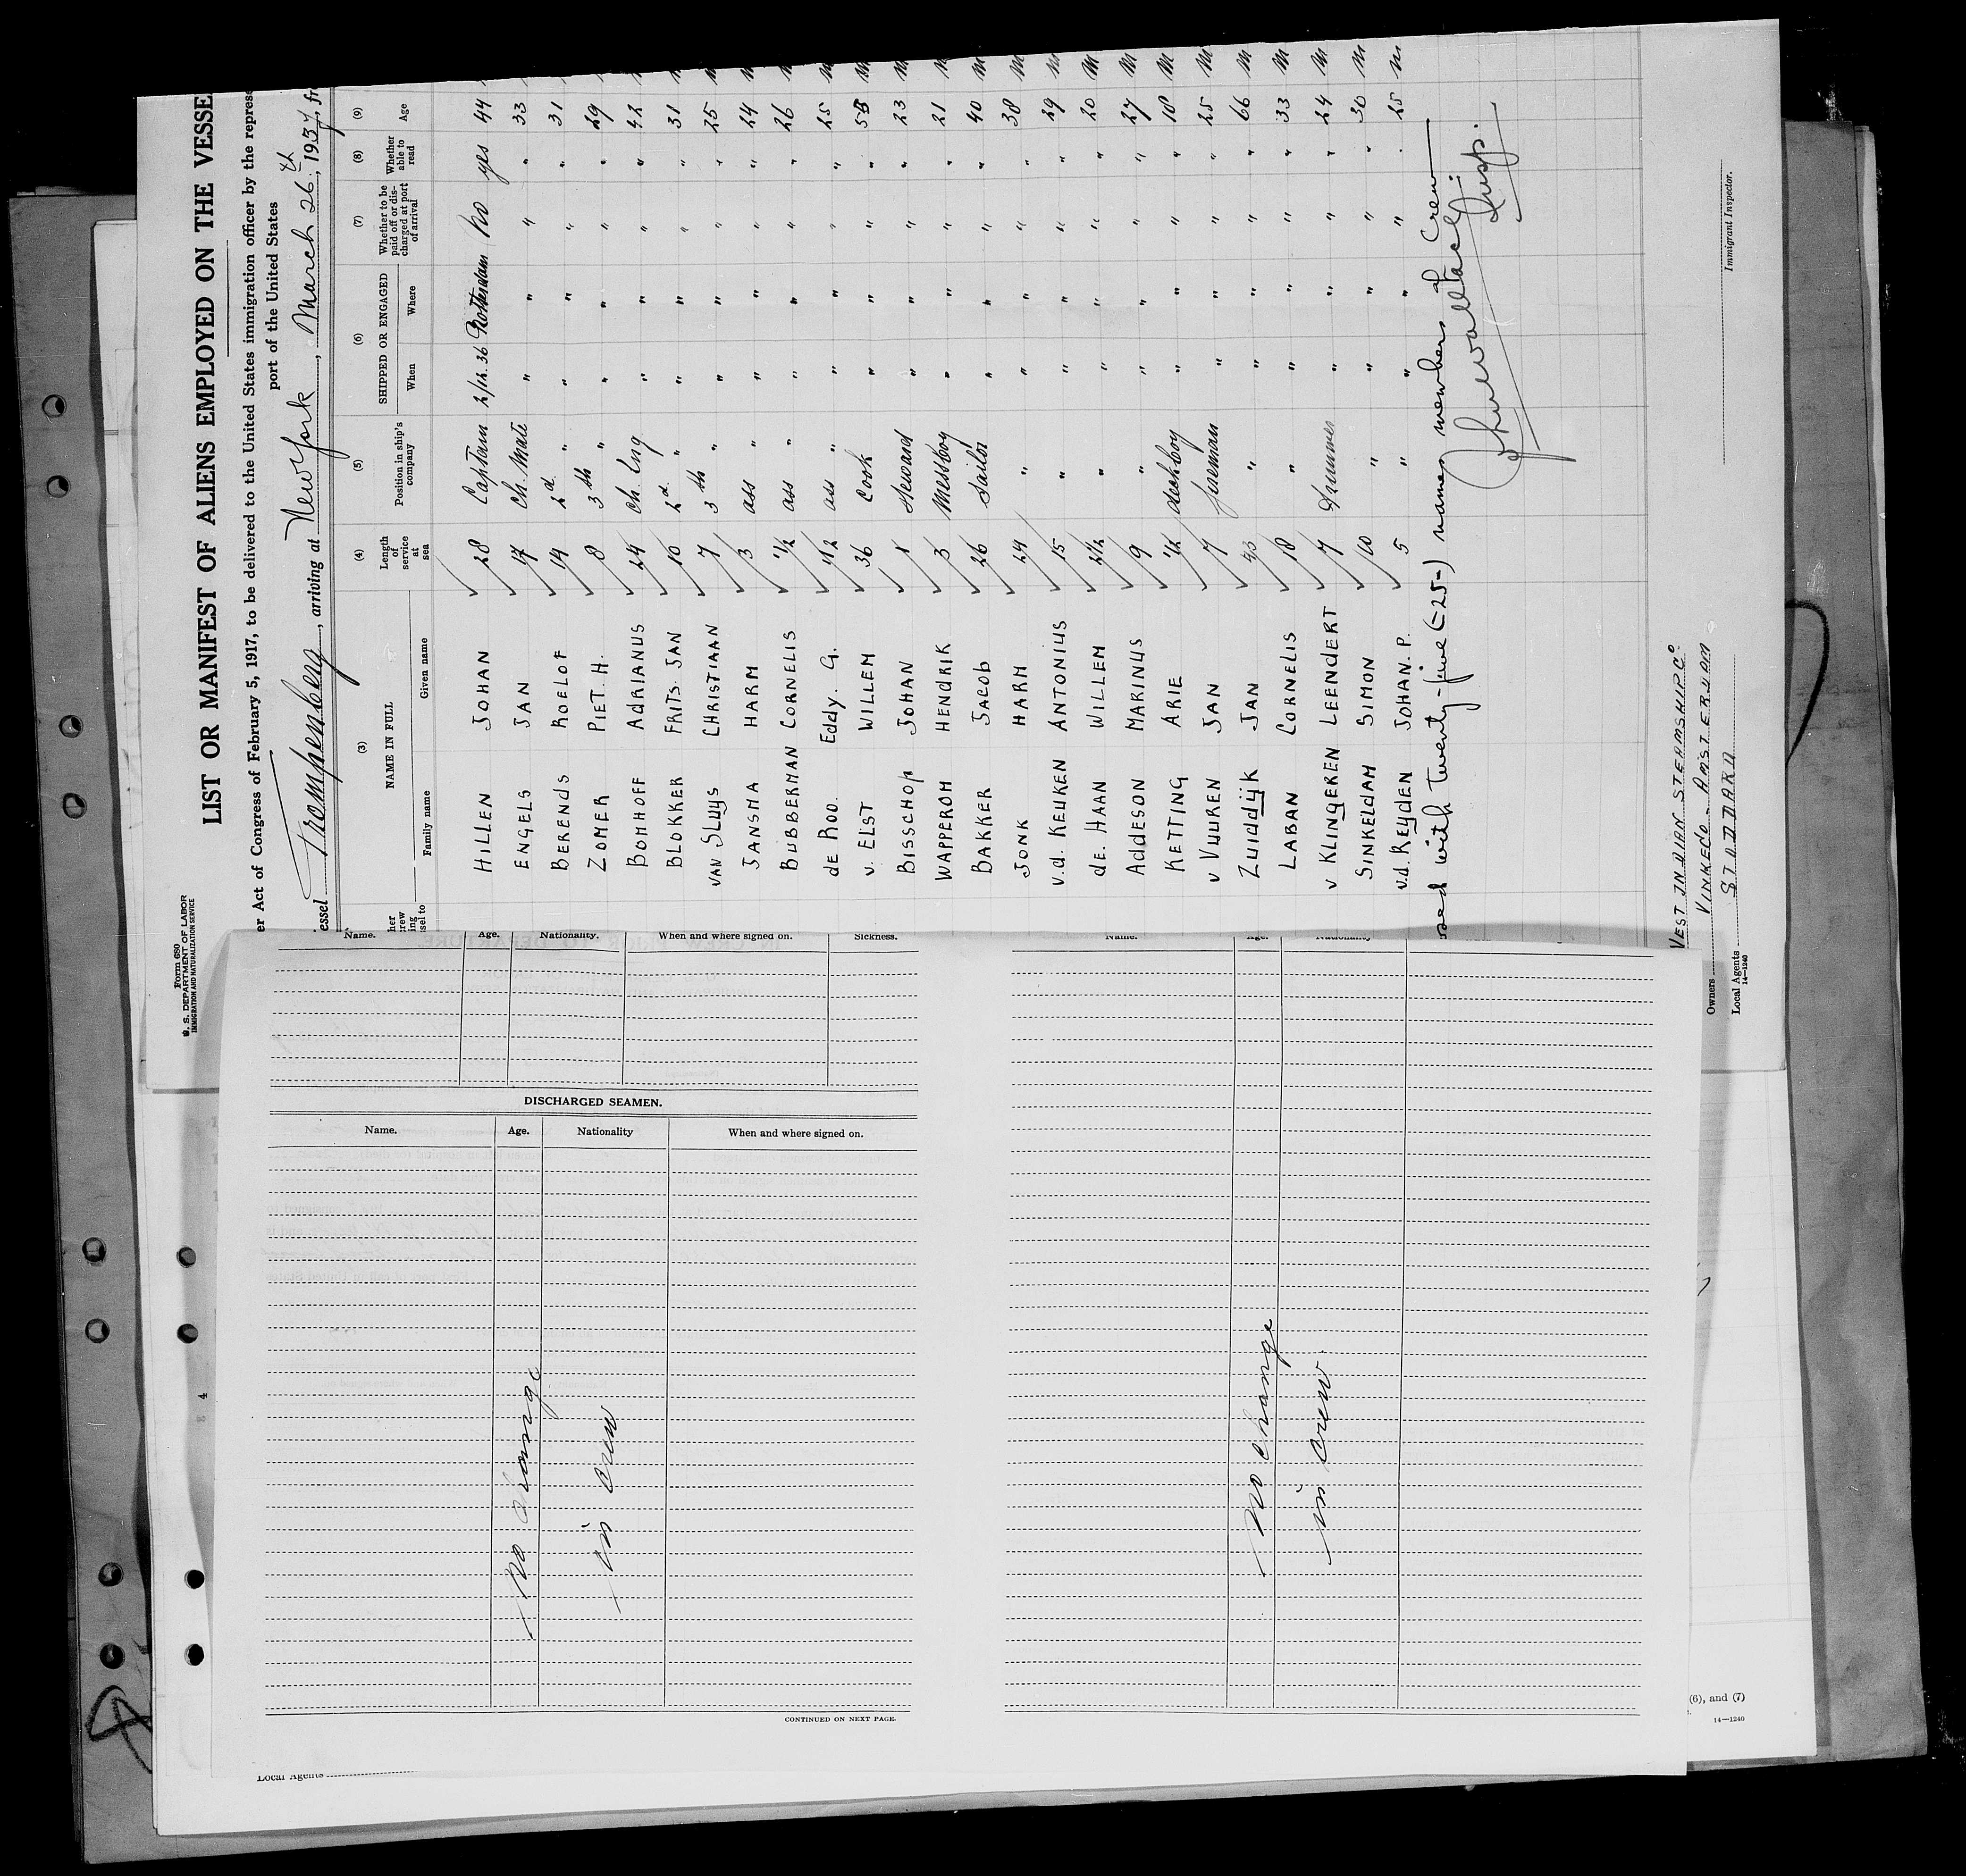 Form 680
U. S. DEPARTMENT OF LABOR
IMMIGRATION AND NATURALIZATION SERVICE
LIST OR MANIFEST OF ALIENS EMPLOYED ON THE VESSE
er Act of Congress of February 5, 1917, to be delivered to the United States immigration officer by the represe
port of the United States
essel Trompenberg, arriving at New York, March 26th, 1937, fr
(3) (4) (5) (6) (7) (8) (9)
NAME IN FULL Length of service at sea Position in ship's company SHIPPED OR ENGAGED Whether to be paid off or discharged at port of arrival Whether able to read Age
Family name Given name When Where
HILLEN JOHAN 28 Captain 2/12.36 Rotterdam No yes 44
ENGELS JAN 17 Ch. Mate " " " " 33
BERENDS ROELOF 14 2d " " " " " 31
ZOMER PIET. H. 8 3th " " " " " 29
BOMHOFF ADRIANUS 24 Ch. Eng " " " " 42
BLOKKER FRITS. JAN 10 2d " " " " " 31
VAN SLUYS CHRISTIAAN 7 3th " " " " " 25
JANSMA HARM 3 ass " " " " " 24
BUBBERMAN CORNELIS 1/2 ass " " " " " 26
de ROO. Eddy. G. ass " " " " " 25
v. ELST WILLEM 36 Cook " " " "
BISSCHOP JOHAN Steward " " " " 23
WAPPEROM HENDRIK 3 Messboy " " " " 21
BAKKER JACOB 26 Sailor " " " " 40
JONK HARM 24 " " " " " 38
v.d. KEUKEN ANTONIUS 15 " " " " " 29
de. HAAN WILLEM 2 1/2 " " " " " 20
ADDESON MARINUS 9 " " " " " 27
KETTING ARIE 1/2 deckboy " " " " 18
v VUUREN JAN 7 fireman " " " " 25
ZUIDDIJK JAN " " " " " 66
LABAN CORNELIS 18 " " " " " 33
v KLINGEREN LEENDERT 7 " " " " 24
SINKELDAM SIMON 10 " " " " " 30
v.d. REYDEN JOHAN. P. 5 " " " " " 25
osed with twenty-five (-25-) names members of Crew
Insp.
Immigrant Inspector.
WEST INDIAN STEAMSHIP Co
Owners VINKE Co - AMSTERDAM
Local Agents STODDARD
14—1240
Name. Age. Nationality. When and where signed on. Sickness.
DISCHARGED SEAMEN.
Name. Age. Nationality When and where signed on.
No change
in crew
CONTINUED ON NEXT PAGE.
Name. Age. Nationality
No change
in crew.
Local Agents
(6), and (7)
14—1240
4